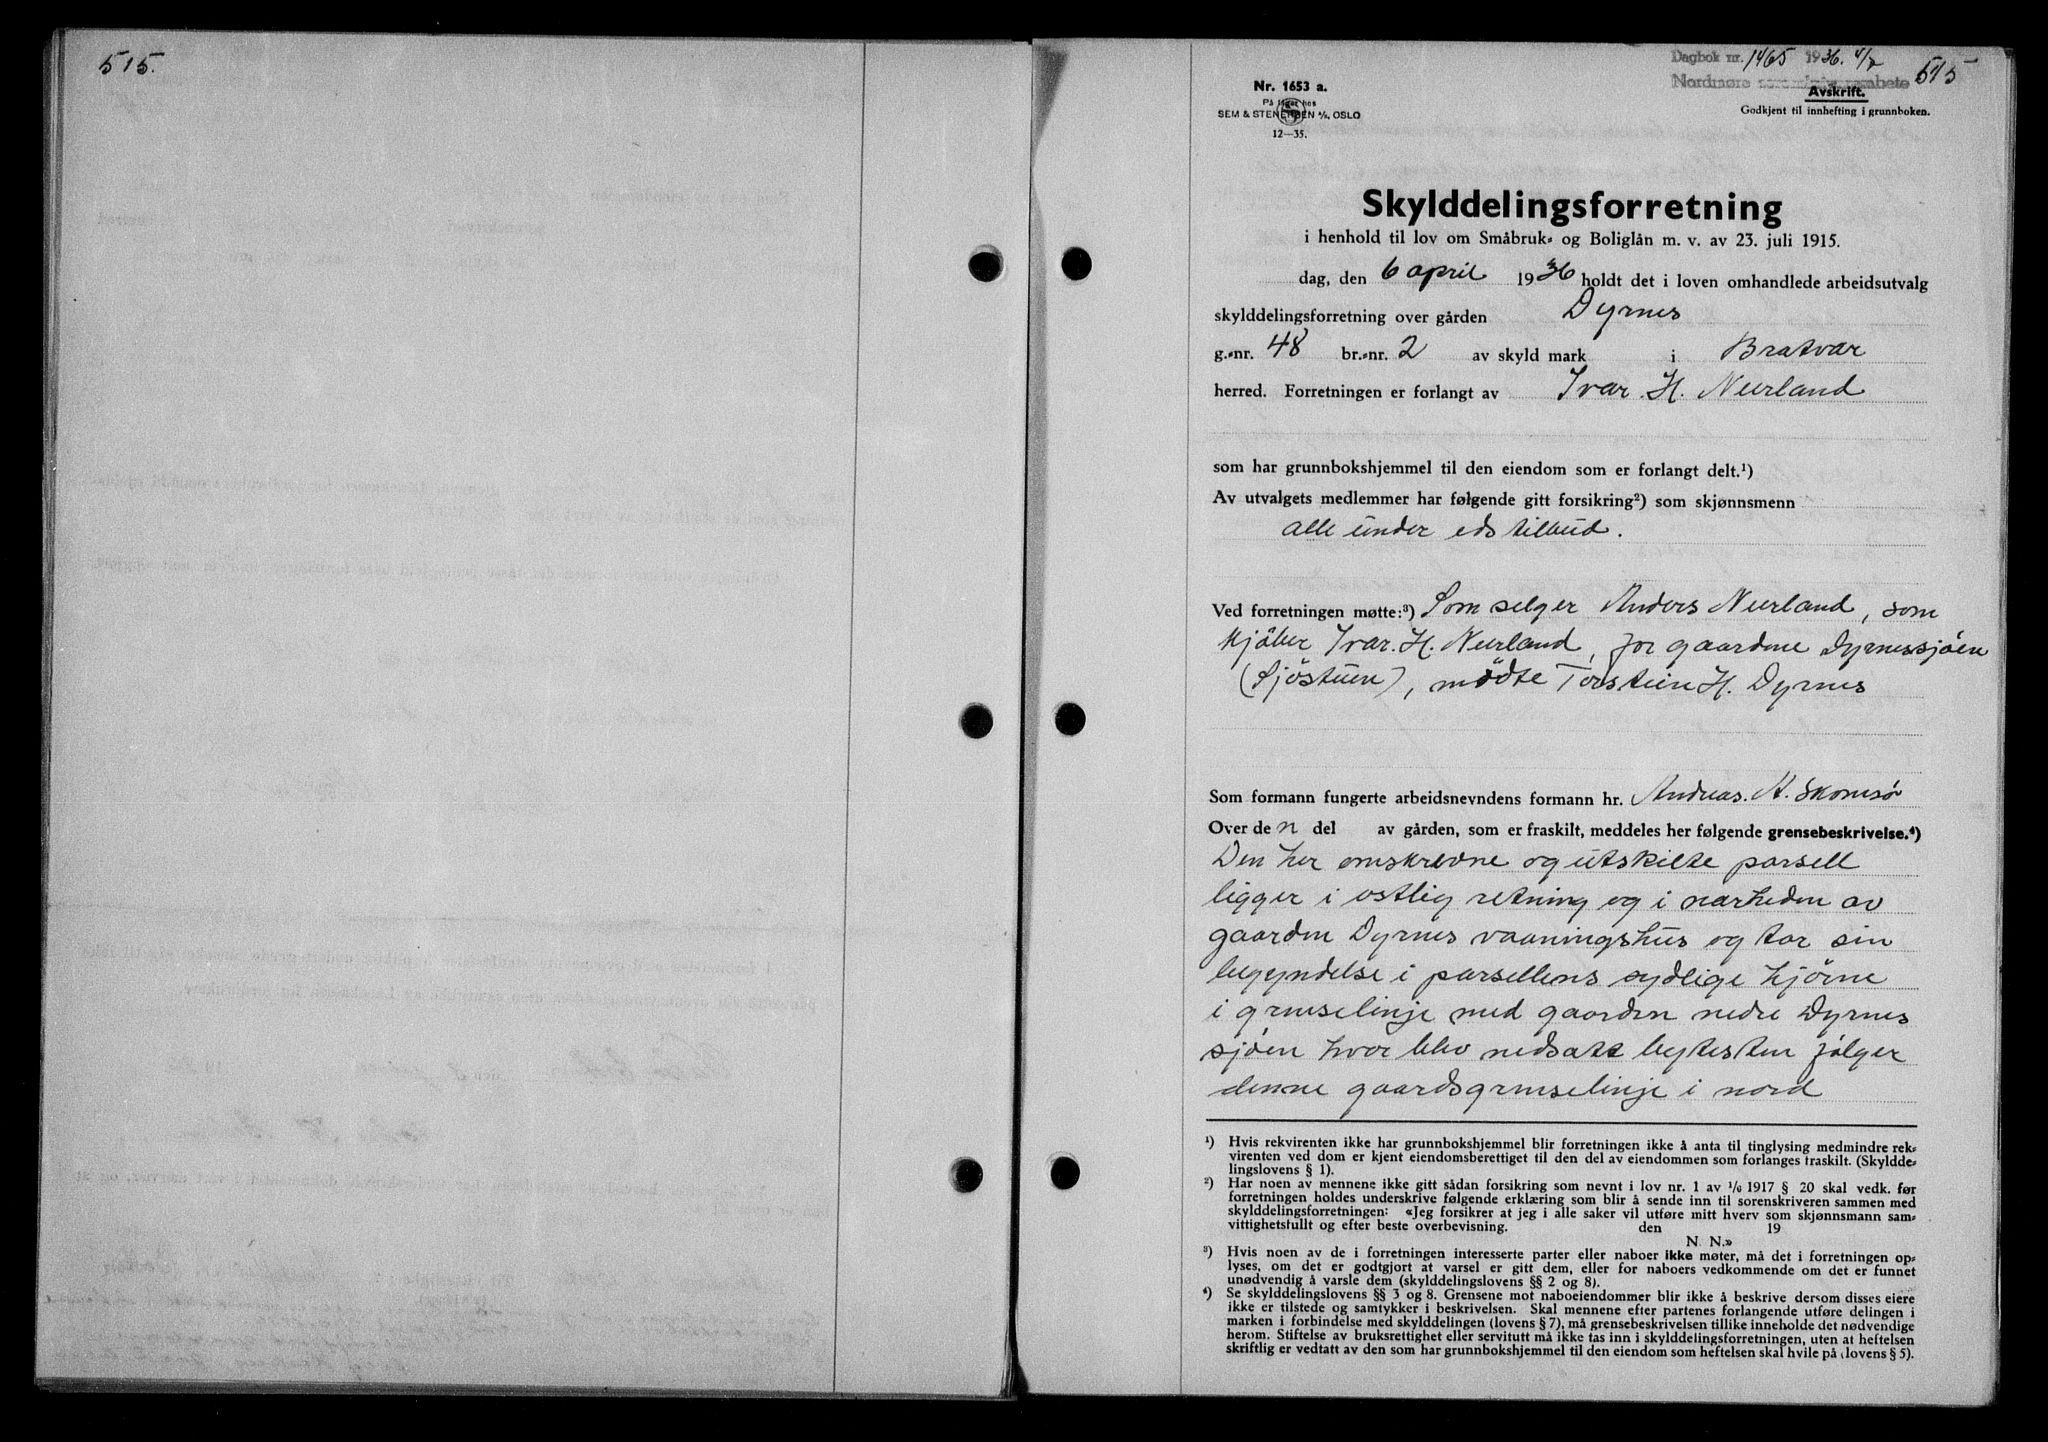 515.
Dagbok nr. 1465 1936. 4/7
Nordmøre sorenskriverembete 515
Nr. 1653 a.
På lager hos
SEM & STENERSEN A/S, OSLO
12—35.
Avskrift.
Godkjent til innhefting i grunnboken.
Skylddelingsforretning
i henhold til lov om Småbruk= og Boliglån m. v. av 23. juli 1915.
dag, den 6 april 1936 holdt det i loven omhandlede arbeidsutvalg
skylddelingsforretning over gården Dyrnes
g.=nr. 48 br.=nr. 2 av skyld mark i Bratvær
herred. Forretningen er forlangt av Ivar. H. Neerland
som har grunnbokshjemmel til den eiendom som er forlangt delt.¹)
Av utvalgets medlemmer har følgende gitt forsikring²) som skjønnsmenn
alle under eds tilbud.
Ved forretningen møtte:³) Som selger Anders Neerland, som
kjøber Ivar. H. Neerland, for gaardene Dyrnessjøen
(Sjøstuen), mødte Torstein H. Dyrnes
Som formann fungerte arbeidsnevndens formann hr. Andreas. A. Skomsø
Over de n del av gården, som er fraskilt, meddeles her følgende grensebeskrivelse.⁴)
Den her omskrevne og utskilte parsell
ligger i østlig retning og i nærheden av
gaarden Dyrnes vaaningshus og tar sin
begyndelse i parsellens sydlige hjørne
i grenselinje med gaarden nedre Dyrnes
sjøen hvor blev nedsatt bytesten følger
denne gaardsgrenselinje i nord
¹) Hvis rekvirenten ikke har grunnbokshjemmel blir forretningen ikke å anta til tinglysing medmindre rek=
virenten ved dom er kjent eiendomsberettiget til den del av eiendommen som forlanges fraskilt. (Skyldde=
lingslovens § 1).
²) Har noen av mennene ikke gitt sådan forsikring som nevnt i lov nr. 1 av 1/6 1917 § 20 skal vedk. før
forretningen holdes underskrive følgende erklæring som blir å sende inn til sorenskriveren sammen med
skylddelingsforretningen: «Jeg forsikrer at jeg i alle saker vil utføre mitt hverv som skjønnsmann sam=
vittighetsfullt og efter beste overbevisning. den 19
N. N.»
³) Hvis noen av de i forretningen interesserte parter eller naboer ikke møter, må det i forretningen op=
lyses, om det er godtgjort at varsel er gitt dem, eller for naboers vedkommende om det er funnet
unødvendig å varsle dem (skylddelingslovens §§ 2 og 8).
⁴) Se skylddelingslovens §§ 3 og 8. Grensene mot naboeiendommer blir ikke å beskrive dersom disses eiere
ikke er tilstede og samtykker i beskrivelsen. Skal mennene efter partenes forlangende utføre delingen i
marken i forbindelse med skylddelingen (lovens § 7), må grensebeskrivelsen tillike inneholde det nødvendige
herom. Stiftelse av bruksrettighet eller servitutt må ikke tas inn i skylddelingsforretningen, uten at heftelsen
skriftlig er vedtatt av den som har grunnbokshjemmel til den eiendom som heftelsen skal hvile på (lovens § 5).